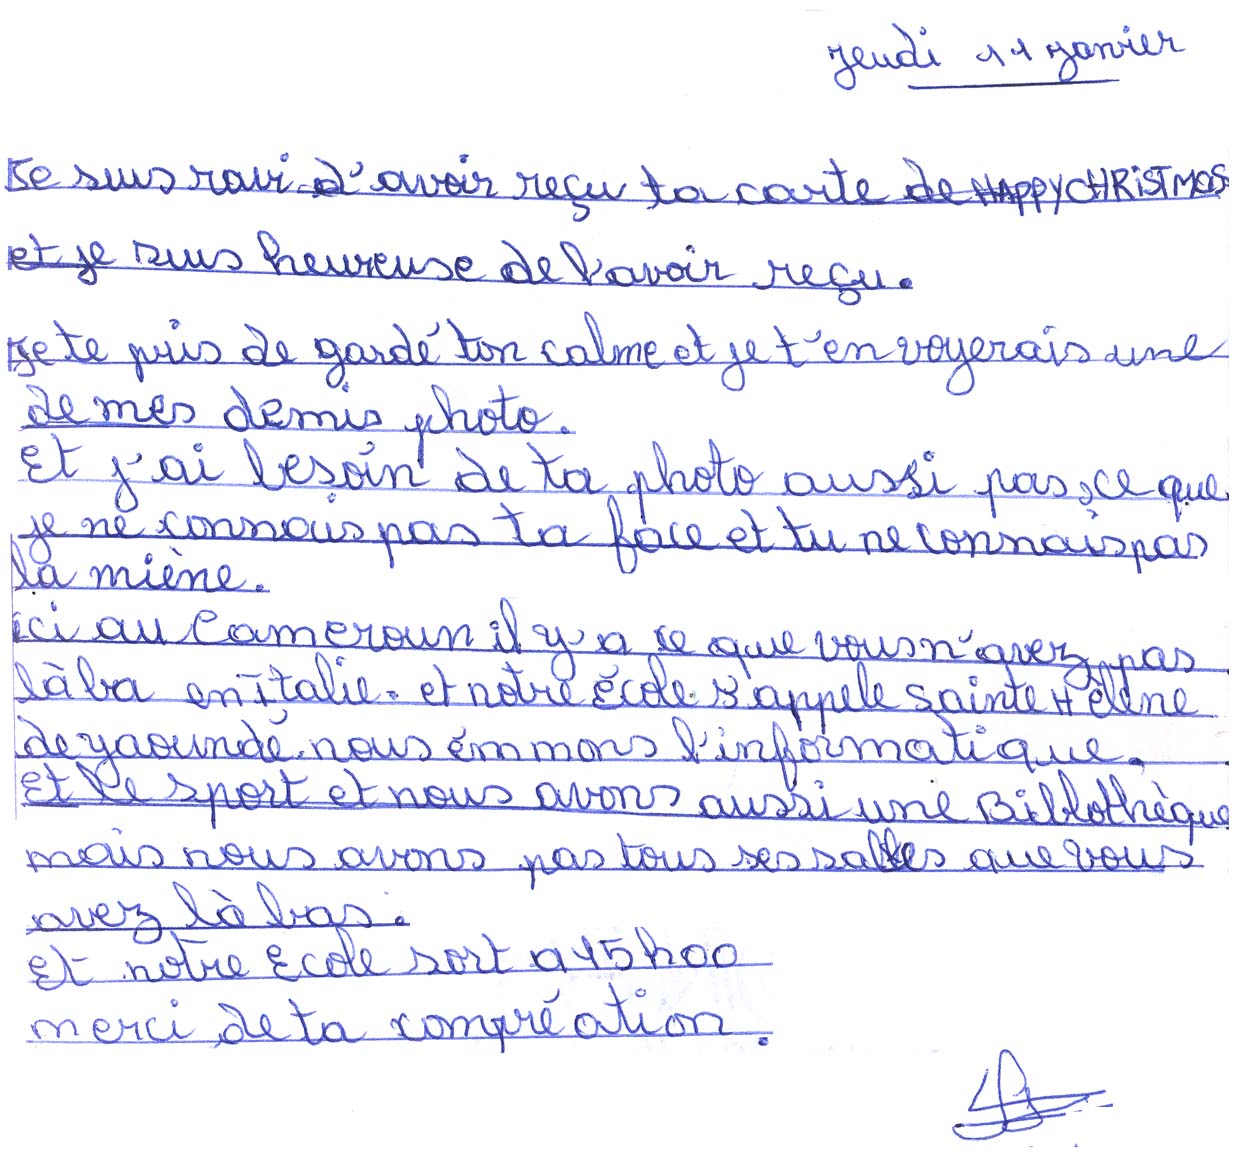 jeudi 11 janvier
Je suis ravi d'avoir reçu ta carte de HAPPY CHRISTMAS
et je suis heureuse de l'avoir reçu.
Je te pris de gardé ton calme et je t'envoyerais une
de mes demis photo.
Et j'ai besoin de ta photo aussi pas,ce que
je ne connais pas ta face et tu ne connais pas
la miène.
ici au Cameroun il y a ce que vous n'avez pas
làba en italie. et notre école s'appele Sainte Hélène
de yaoundé. nous émmons l'informatique.
Et le sport et nous avons aussi une Biblothèque
mais nous avons pas tous ses salles que vous
avez là bas.
Et notre Ecole sort a 15h00
merci de ta compréation.